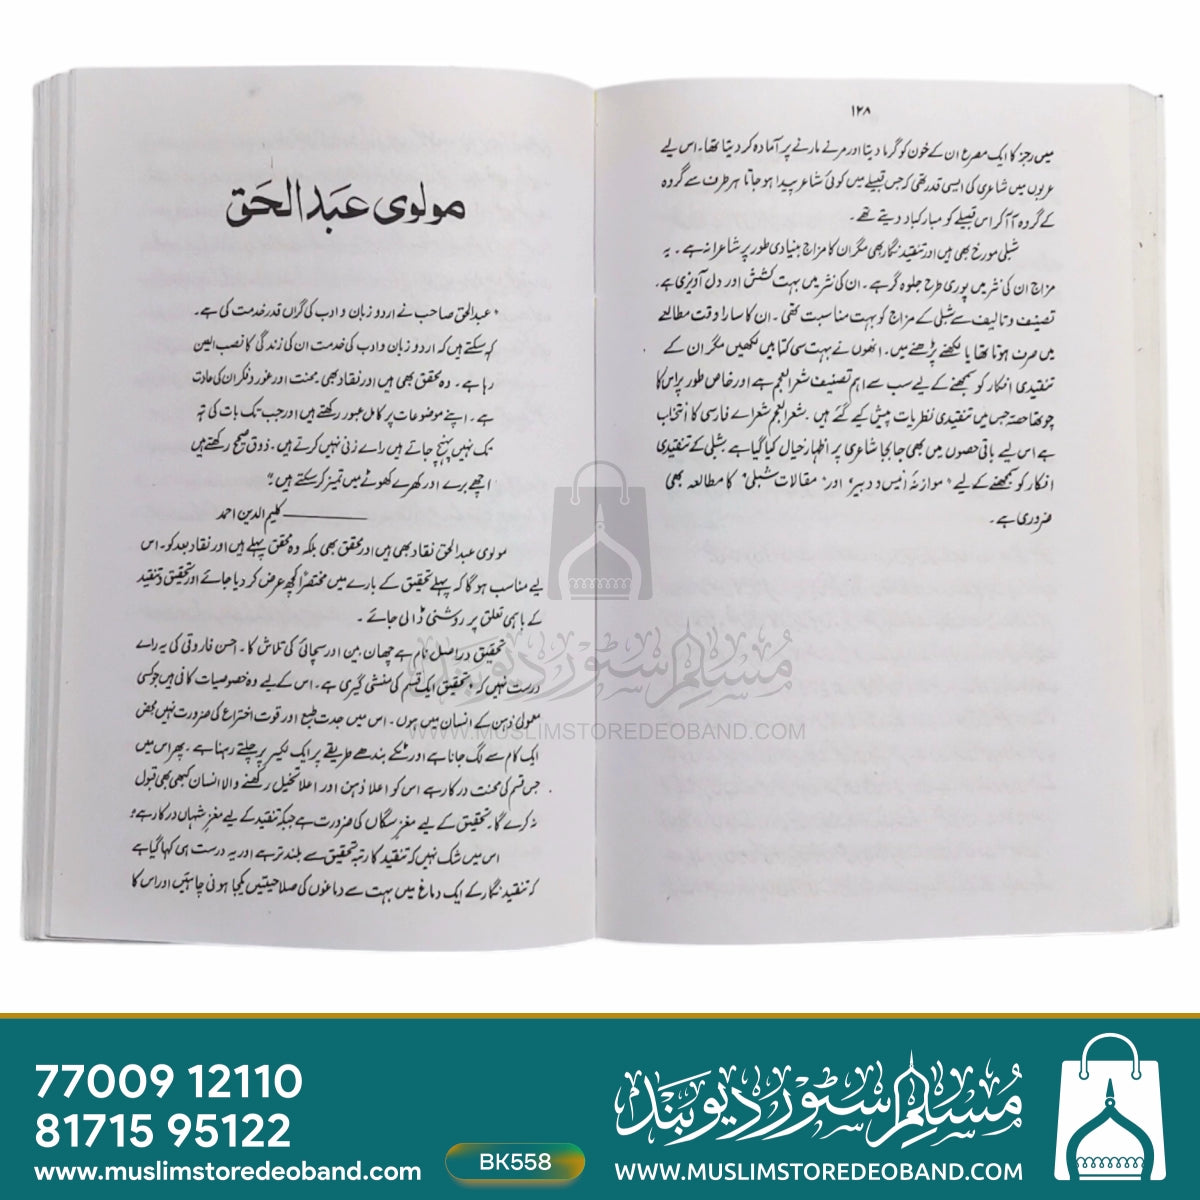 ۱۲۸
میں رجز کا ایک مصرع ان کے خون کو گرما دیتا اور مرنے مارنے پر آمادہ کر دیتا تھا۔ اس لیے
عربوں میں شاعری کی ایسی قدر تھی کہ جس قبیلے میں کوئی شاعر پیدا ہو جاتا ہر طرف سے گروہ
کے گروہ آ آ کر اس قبیلے کو مبارکباد دیتے تھے۔
شبلی مورخ بھی ہیں اور تنقید نگار بھی مگر ان کا مزاج بنیادی طور پر شاعرانہ ہے۔ یہ
مزاج ان کی نثر میں پوری طرح جلوہ گر ہے۔ ان کی نثر میں بہت کشش اور دل آویزی ہے۔
تصنیف و تالیف سے شبلی کے مزاج کو بہت مناسبت تھی۔ ان کا سارا وقت مطالعے
میں صرف ہوتا تھا یا لکھنے پڑھنے میں۔ انھوں نے بہت سی کتابیں لکھیں مگر ان کے
تنقیدی افکار کو سمجھنے کے لیے سب سے اہم تصنیف شعرالعجم ہے اور خاص طور پر اس کا
چوتھا حصہ جس میں تنقیدی نظریات پیش کیے گئے ہیں۔ شعرالعجم شعراے فارسی کا انتخاب
ہے اس لیے باقی حصوں میں بھی جا بجا شاعری پر اظہار خیال کیا گیا ہے۔ شبلی کے تنقیدی
افکار کو سمجھنے کے لیے "موازنۂ انیس و دبیر" اور "مقالات شبلی" کا مطالعہ بھی
ضروری ہے۔
مولوی عبدالحق
"عبدالحق صاحب نے اردو زبان و ادب کی گراں قدر خدمت کی ہے۔
کہہ سکتے ہیں کہ اردو زبان و ادب کی خدمت ان کی زندگی کا نصب العین
رہا ہے۔ وہ محقق بھی ہیں اور نقاد بھی۔ محنت اور غور و فکر ان کی عادت
ہے۔ اپنے موضوعات پر کامل عبور رکھتے ہیں اور جب تک بات کی تہہ
تک نہیں پہنچ جاتے ہیں راے زنی نہیں کرتے ہیں۔ ذوق صحیح رکھتے ہیں
اچھے برے اور کھرے کھوٹے میں تمیز کر سکتے ہیں"۔
کلیم الدین احمد
مولوی عبدالحق نقاد بھی ہیں اور محقق بھی بلکہ وہ محقق پہلے ہیں اور نقاد بعد کو۔ اس
لیے مناسب ہو گا کہ پہلے تحقیق کے بارے میں مختصراً کچھ عرض کر دیا جائے اور تحقیق و تنقید
کے باہمی تعلق پر روشنی ڈالی جائے۔
تحقیق در اصل نام ہے چھان بین اور سچائی کی تلاش کا۔ احسن فاروقی کی یہ راے
درست نہیں کہ "تحقیق ایک قسم کی منشی گیری ہے۔ اس کے لیے وہ خصوصیات کافی ہیں جو کسی
معمولی ذہن کے انسان میں ہوں۔ اس میں جدت طبع اور قوت اختراع کی ضرورت نہیں محض
ایک کام سے لگ جانا ہے اور ٹکے بندھے طریقے پر ایک لکیر پر چلتے رہنا ہے۔ پھر اس میں
جس قسم کی محنت درکار ہے اس کو اعلا ذہن اور اعلا تخیل رکھنے والا انسان کبھی بھی قبول
نہ کرے گا۔ تحقیق کے لیے مغز سگاں کی ضرورت ہے جبکہ تنقید کے لیے مغز شہاں درکار ہے"
اس میں شک نہیں کہ تنقید کا رتبہ تحقیق سے بلند تر ہے اور یہ درست ہی کہا گیا ہے
کہ تنقید نگار کے ایک دماغ میں بہت سے دماغوں کی صلاحیتیں یکجا ہونی چاہئیں اور اس کا
مسلم سٹور دیوبند
WWW.MUSLIMSTOREDEOBAND.COM
77009 12110
81715 95122
www.muslimstoredeoband.com
BK558
مسلم سٹور دیوبند
WWW.MUSLIMSTOREDEOBAND.COM